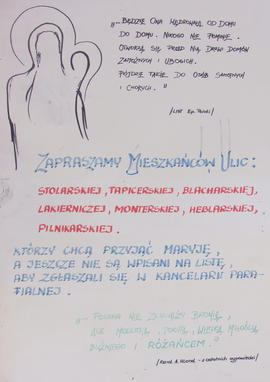 "...BĘDZIE ONA WĘDROWAŁA OD DOMU
DO DOMU. NIKOGO NIE POMINIE.
OTWORZĄ SIĘ PRZED NIĄ DRZWI DOMÓW
ZAMOŻNYCH I UBOGICH.
PÓJDZIE TAKŻE DO OSÓB SAMOTNYCH
I CHORYCH."
/LIST Ep. Polski/
ZAPRASZAMY MIESZKAŃCÓW ULIC:
STOLARSKIEJ, TAPICERSKIEJ, BLACHARSKIEJ,
LAKIERNICZEJ, MONTERSKIEJ, HEBLARSKIEJ,
PILNIKARSKIEJ.
KTÓRZY CHCĄ PRZYJĄĆ MARYJĘ,
A JESZCZE NIE SĄ WPISANI NA LISTĘ,
ABY ZGŁASZALI SIĘ W KANCELARII PARA-
FIALNEJ.
"POLSKA NIE ZWYCIĘŻY BRONIĄ,
ALE MODLITWĄ, POKUTĄ, WIELKĄ MIŁOŚCIĄ
BLIŹNIEGO I RÓŻAŃCEM."
/Kard. A. Hlond - z ostatnich wypowiedzi/